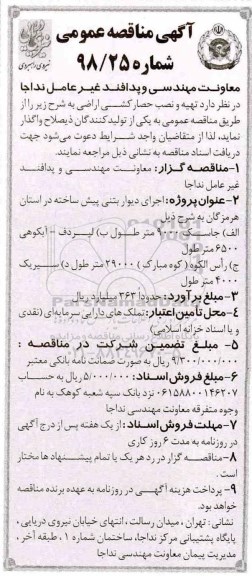 آگهی مناقصه عمومی
شماره ۹۸/۲۵
معاونت مهندسی و پدافند غیر عامل نداجا
در نظر دارد تهیه و نصب حصارکشی اراضی به شرح زیر را از
طریق مناقصه عمومی به یکی از تولیدکنندگان ذیصلاح واگذار
نماید، لذا از متقاضیان واجد شرایط دعوت می‌شود جهت
دریافت اسناد مناقصه به نشانی ذیل مراجعه نمایند.
۱-مناقصه گزار: معاونت مهندسی و پدافند
غیر عامل نداجا
۲-عنوان پروژه: اجرای دیوار بتنی پیش ساخته در استان
هرمزگان به شرح ذیل
الف) جاسک ۹۰۰۰ متر طول ب) لیردف - آبکوهی
۶۵۰۰ متر طول
ج) رأس الکوه (کوه مبارک) ۲۹۰۰۰ متر طول د) سیریک
۴۰۰۰ متر طول
۳-مبلغ برآورد: حدود ۲۶۳ میلیارد ریال
۴-محل تأمین اعتبار: تملک های دارایی سرمایه‌ای (نقدی
و یا اسناد خزانه اسلامی)
۵- مبلغ تضمین شرکت در مناقصه:
۹/۳۰۰/۰۰۰/۰۰۰ ریال به صورت ضمانت نامه بانکی معتبر
۶-مبلغ فروش اسناد: ۵/۰۰۰/۰۰۰ ریال به حساب
نزد بانک سپه شعبه کوهک به نام
وجوه متفرقه معاونت مهندسی نداجا
۷-مهلت فروش اسناد: از یک هفته پس از درج آگهی
در روزنامه به مدت ۶ روز کاری
۸-مناقصه گزار در رد هر یک یا تمام پیشنهادها مختار
است
۹- پرداخت هزینه آگهی در روزنامه به عهده برنده مناقصه
خواهد بود.
نشانی: تهران، میدان رسالت، انتهای خیابان نیروی دریایی،
پایگاه پشتیبانی مرکز نداجا، ساختمان شماره ۱، طبقه آخر،
مدیریت پیمان معاونت مهندسی نداجا